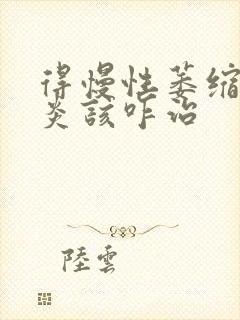 得慢性萎缩
炎該咋治
陸雲